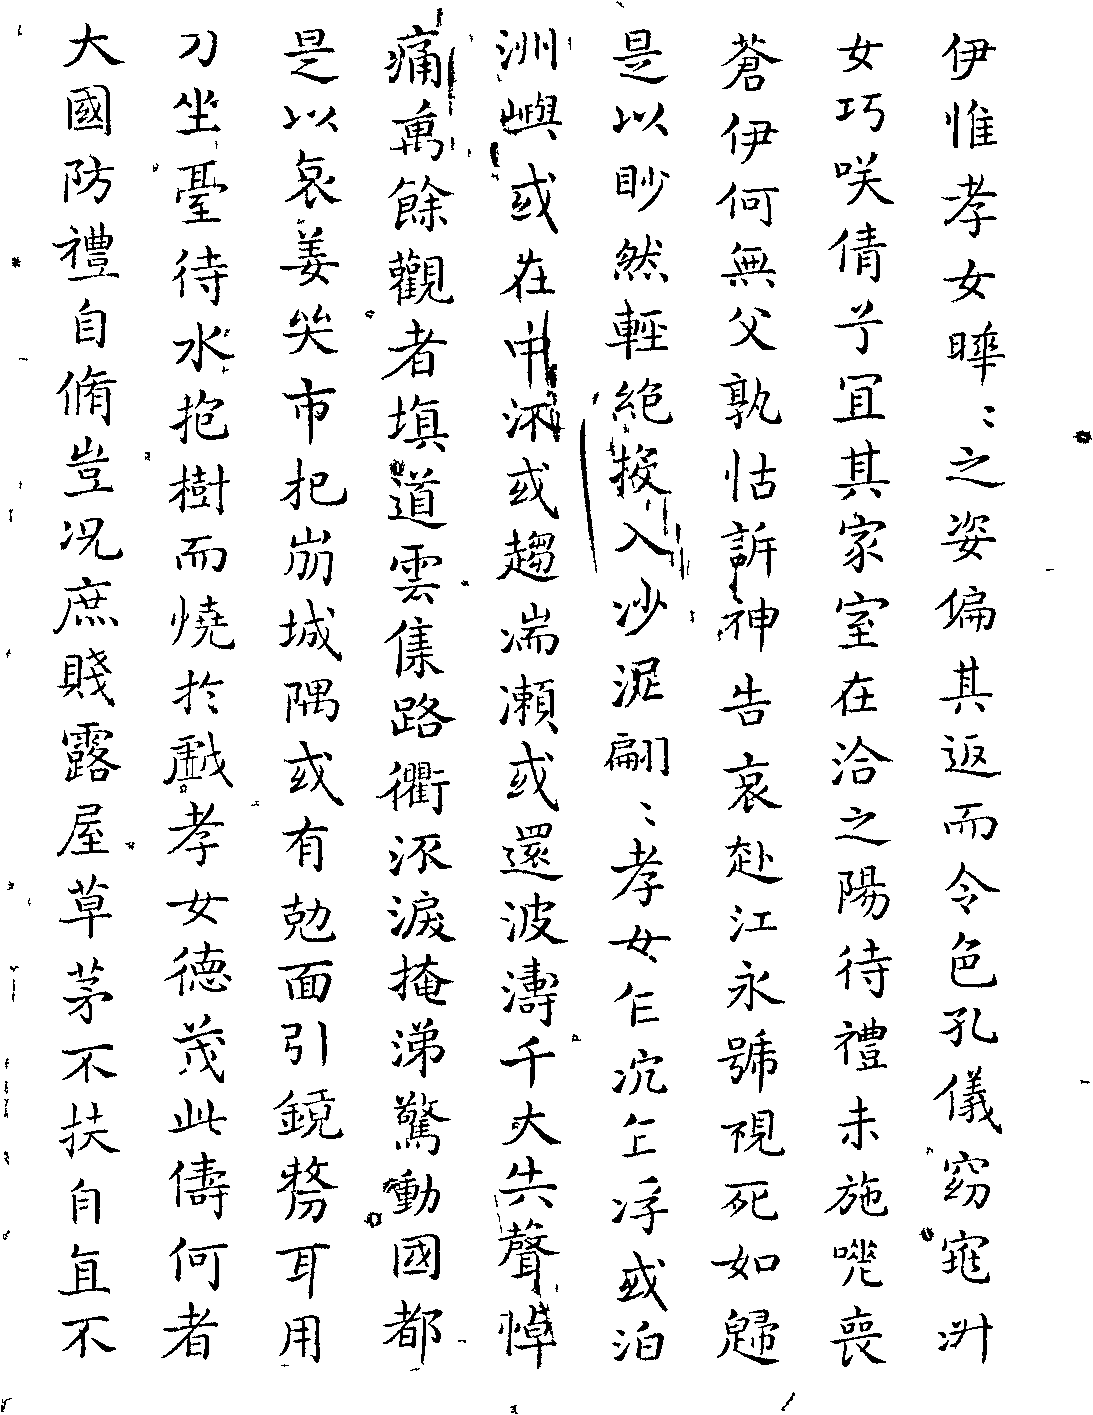 伊惟孝女曄〻之姿偏其返而令色孔儀窈窕淑
女巧咲倩兮宜其家室在洽之陽待禮未施嗟喪
蒼伊何無父孰怙訴神告哀赴江永號視死如歸
是以眇然輕絕投入沙泥翩〻孝女乍沉乍浮或泊
洲嶼或在中流或趨湍瀨或還波濤千夫失聲悼
痛萬餘觀者填道雲集路衢流淚掩涕驚動國都
是以哀姜哭市杞崩城隅或有勊面引鏡剺耳用
刀坐臺待水抱樹而燒於戲孝女德茂此儔何者
大國防禮自脩豈况庶賤露屋草茅不扶自直不